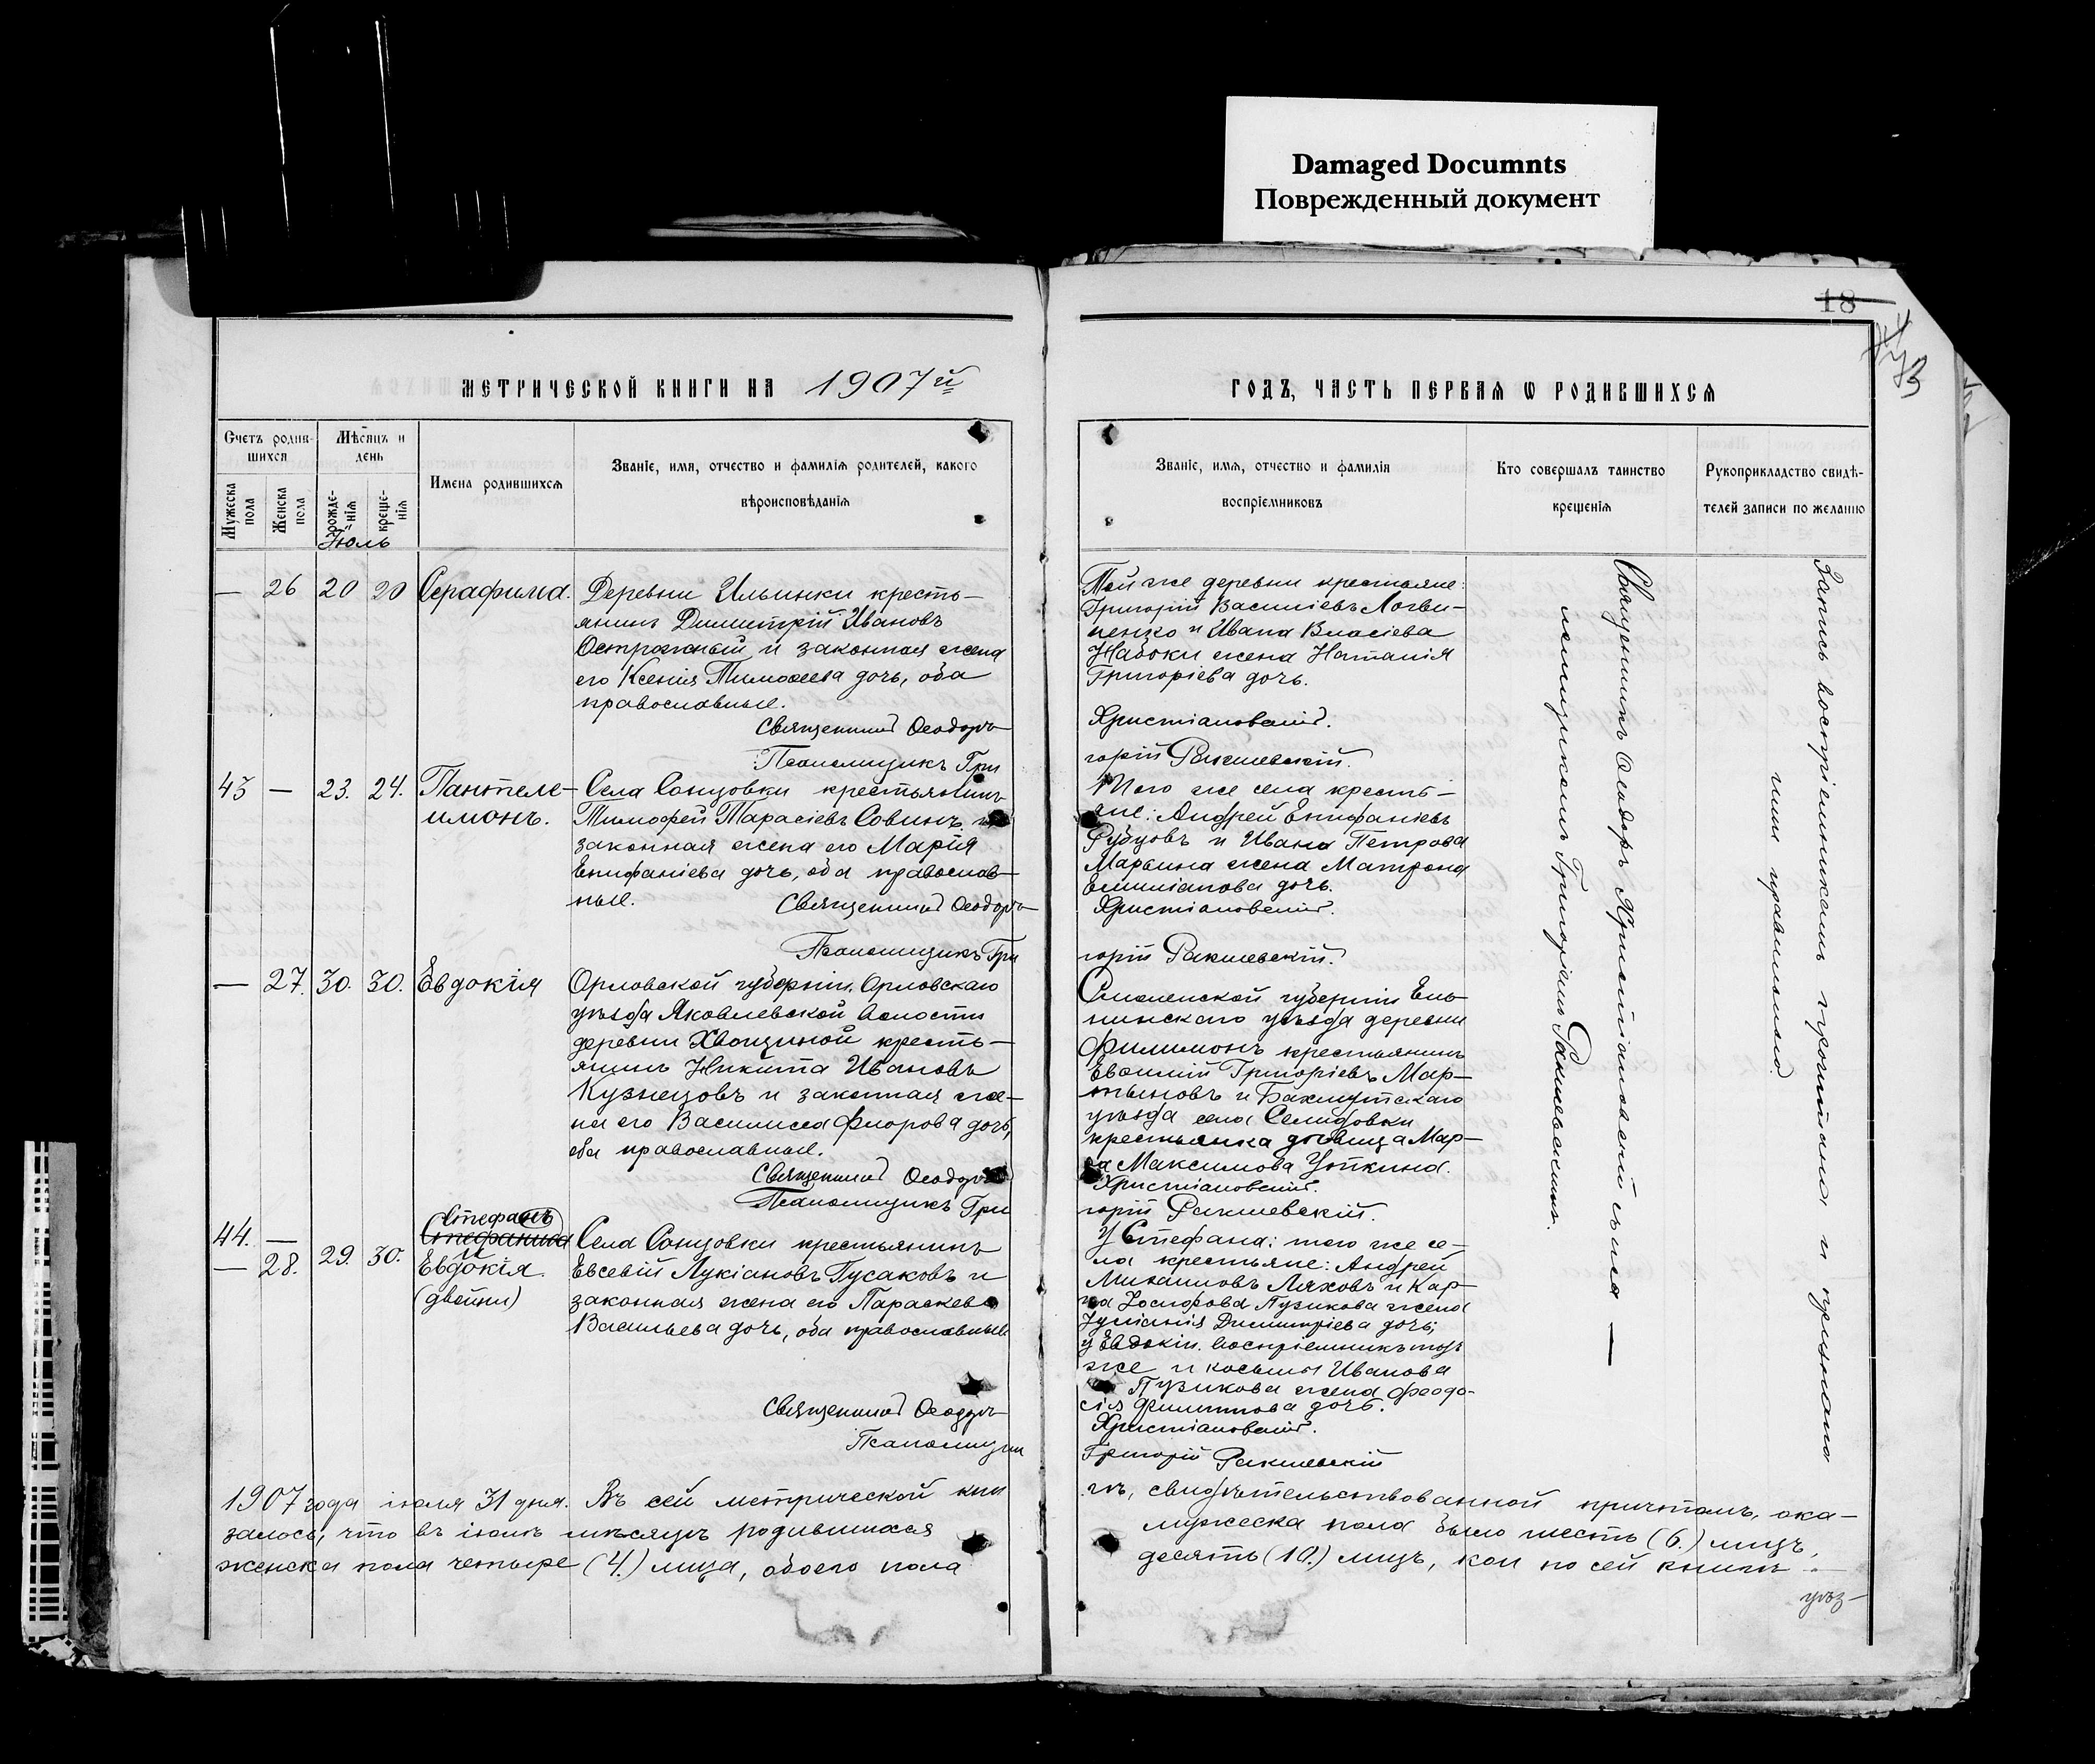 Damaged Documnts
Поврежденный документ
18
МЕТРИЧЕСКОЙ КНИГИ НА 1907й
ГОДЪ, ЧАСТЬ ПЕРВАЯ Ѡ РОДИВШИХСЯ
Счетъ родив-
шихся
Мужеска пола
Женска пола
Мѣсяцъ и
день
рожде-
нія
креще-
нія
Имена родившихся
Званіе, имя, отчество и фамилія родителей, какого
вѣроисповѣданія
Званіе, имя, отчество и фамилія
воспріемниковъ
Кто совершалъ таинство
крещенія
Рукоприкладство свидѣ-
телей записи по желанію
Іюль
— 26 20 20 Серафима.
Деревни Ильинки кресть-
янинъ Димитрій Ивановъ
Остражный и законная жена
его Ксенія Тимоѳеева дочь, оба
православные.
Священникъ Ѳеодоръ
Псаломщикъ Гри
Той же деревни крестьяне:
Григорій Василіевъ Логви-
ненко и Ивана Власіева
Набоки жена Наталія
Григоріева дочь.
Христіановскій.
горій Ракшевскій.
43 — 23. 24. Пантеле-
имонъ.
Села Сонцовки крестьянинъ
Тимофей Тарасіевъ Совинъ и
законная жена его Марія
Епифаніева дочь, оба православ-
ные.
Священникъ Ѳеодоръ
Псаломщикъ Гри
Того же села кресть-
яне: Андрей Епифаніевъ
Рубцовъ и Ивана Петрова
Марьина жена Матрона
Емиліанова дочь.
Христіановскій.
горій Ракшевскій.
— 27. 30. 30. Евдокія
Орловской губерніи, Орловскаго
уѣзда Яковлевской волости
деревни Хвощиной кресть-
янинъ Никита Ивановъ
Кузнецовъ и законная же-
на его Василисса Флорова дочь,
оба православные.
Священникъ Ѳеодоръ
Псаломщикъ Гри
Смоленской губерніи Ель-
нинскаго уѣзда деревни
Филимонъ крестьянинъ
Евѳимій Григоріевъ Мар-
тыновъ и Бахмутскаго
уѣзда села Селидовки
крестьянка дѣвица Мар-
ѳа Максимова Уткина.
Христіановскій.
горій Ракшевскій.
44. —
— 28. 29. 30.
Стефанъ
Стефанида
и
Евдокія
(двойни)
Села Сонцовки крестьянинъ
Евсевій Лукіановъ Гусаковъ и
законная жена его Параскева
Васильева дочь, оба православные
Священникъ Ѳеодоръ
Псаломщикъ
У Стефана: того же се-
ла крестьяне: Андрей
Михаиловъ Ляховъ и Кар-
па Іосифова Пузикова жена
Іуліанія Димитріева дочь;
у Евдокіи воспріемникъ тотъ
же и Косьмы Иванова
Пузикова жена Феодо-
сія Филиппова дочь.
Христіановскій.
Григорій Ракшевскій
Священникъ Ѳеодоръ Христіановскій съ пса-
ломщикомъ Григоріемъ Ракшевскимъ.
Запись воспріемникамъ прочитана и признана
ими правильною.
1907 года іюля 31 дня. Въ сей метрической кни
гѣ, свидѣтельствованной причтомъ, ока-
залось, что въ іюлѣ мѣсяцѣ родившихся
мужеска пола было шесть (6.) лицъ,
женска пола четыре (4.) лица, обоего пола
десять (10.) лицъ, кои по сей книгѣ